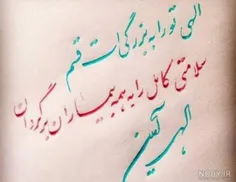 الهی تو را به بزرگی ات قسم
سلامتی کامل را به همه بیماران برگردان
الهی آمین